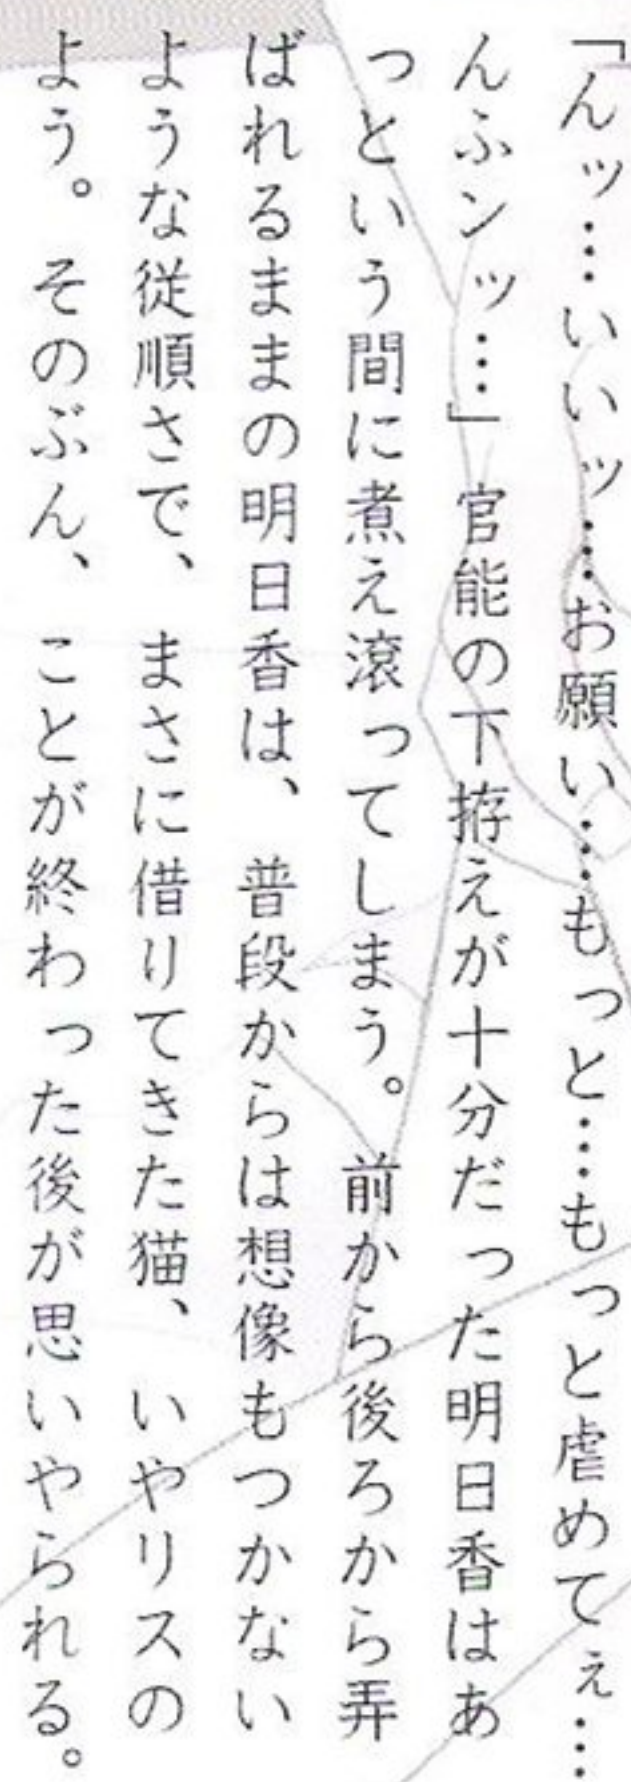 「んッ…いいッ…お願い…もっと…もっと虐めてぇ…
んふンッ…」官能の下拵えが十分だった明日香はあ
っという間に煮え滾ってしまう。前から後ろから弄
ばれるままの明日香は、普段からは想像もつかない
ような従順さで、まさに借りてきた猫、いやリスの
よう。そのぶん、ことが終わった後が思いやられる。